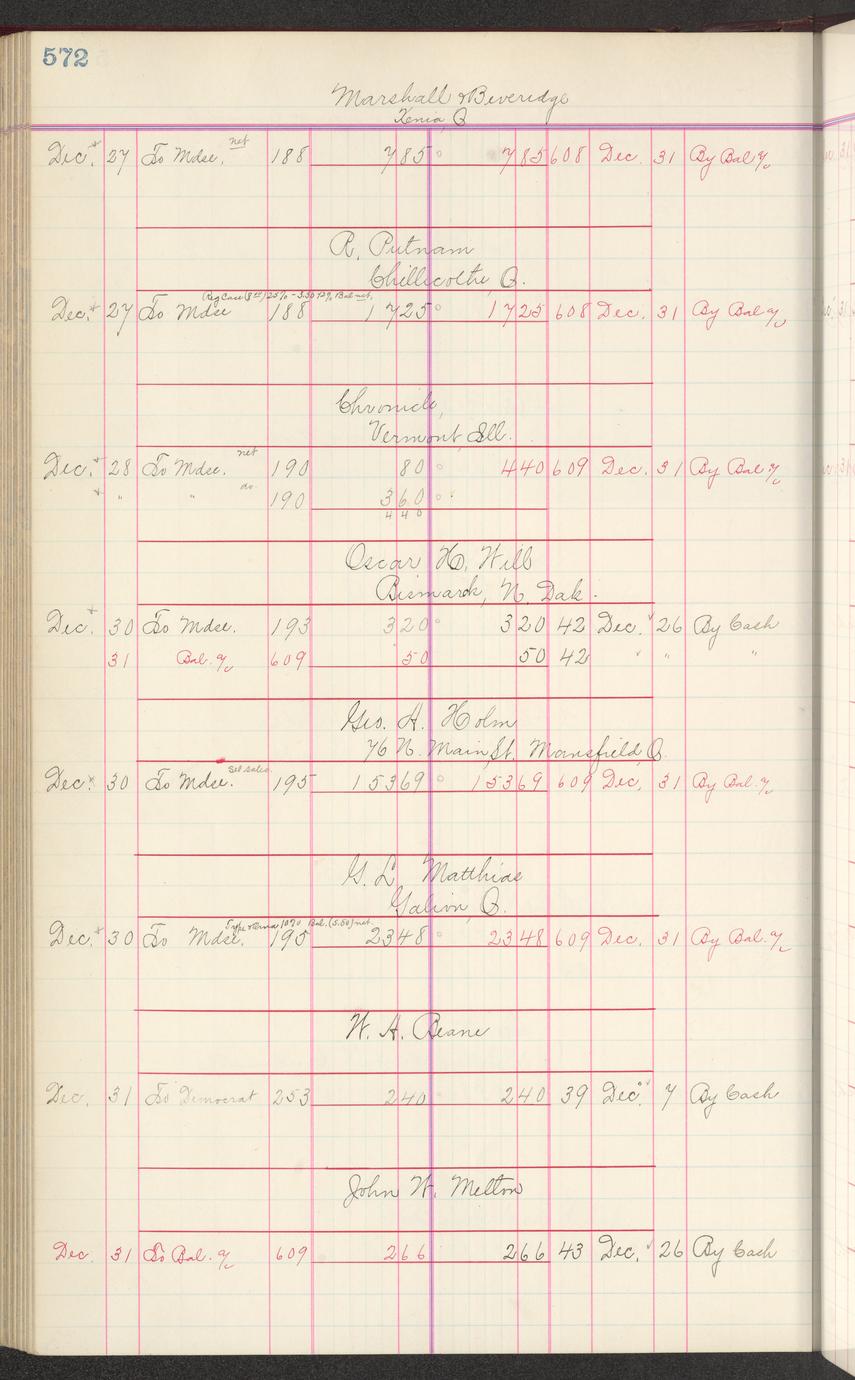 572
Marshall & Beveridge
Xenia, O
net
Dec. 27 To Mdse. 188 785 785 608 Dec. 31 By Bal a/c
R. Putnam
Chillicothe, O.
Bal net,
Dec. 27 To Mdse 188 1725 1725 608 Dec. 31 By Bal a/c
Chronicle,
Vermont, Ill.
net
Dec. 28 To Mdse. 190 80 440 609 Dec. 31 By Bal a/c
do.
" " 190 360
440
Oscar H. Will
Bismarck, N. Dak.
Dec. 30 To Mdse. 193 320 320 42 Dec. 26 By Cash
31 Bal. a/c 609 50 50 42 " "
Geo. H. Holm
76 N. Main St. Mansfield, O.
Sel sales.
Dec. 30 To Mdse. 195 15369 15369 609 Dec. 31 By Bal. a/c
G. L. Matthias
Galion, O.
10% Bal. (5.50) net.
Dec. 30 To Mdse. 195 2348 2348 609 Dec. 31 By Bal. a/c
W. H. Beane
Dec. 31 To Democrat 253 240 240 39 Dec. 7 By Cash
John W. Melton
Dec. 31 To Bal. a/c 609 266 266 43 Dec. 26 By Cash